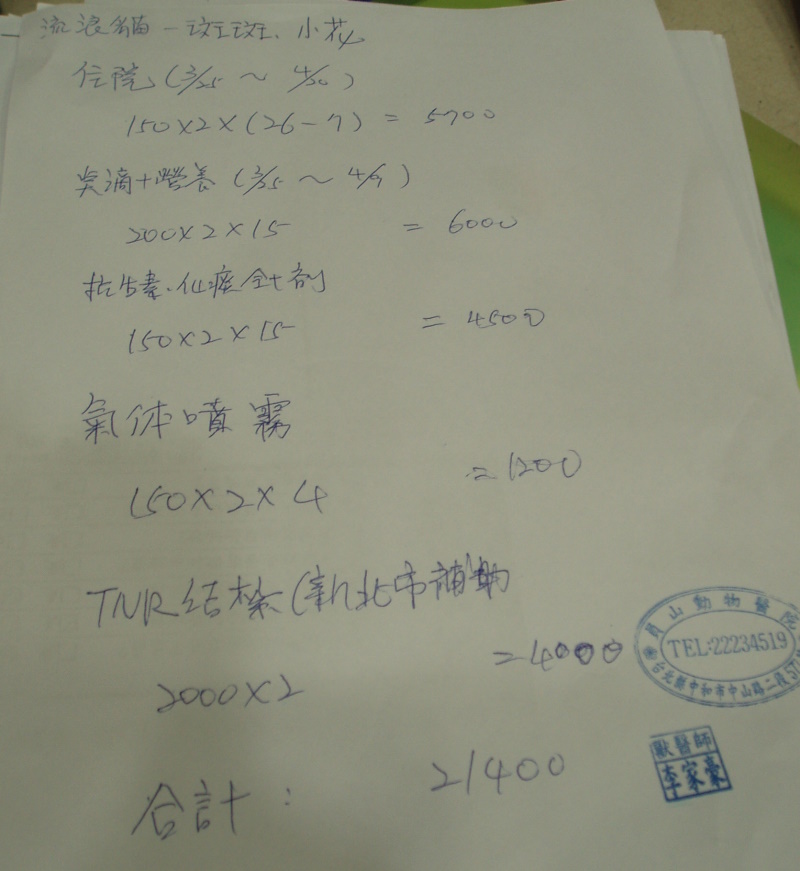 流浪貓－斑斑、小花
住院(3/25 ~ 4/20)
150×2×(26-7) = 5700
點滴+營養(3/25 ~ 4/9)
200×2×15 = 6000
抗生素、化痰全十劑
150×2×15 = 4500
氣体噴霧
150×2×4 = 1200
TNR結紮(新北市補助
2000×2 = 4000
合計: 21400
員山動物醫院
TEL:22234519
台北縣中和市中山路二段
獸醫師
李家豪